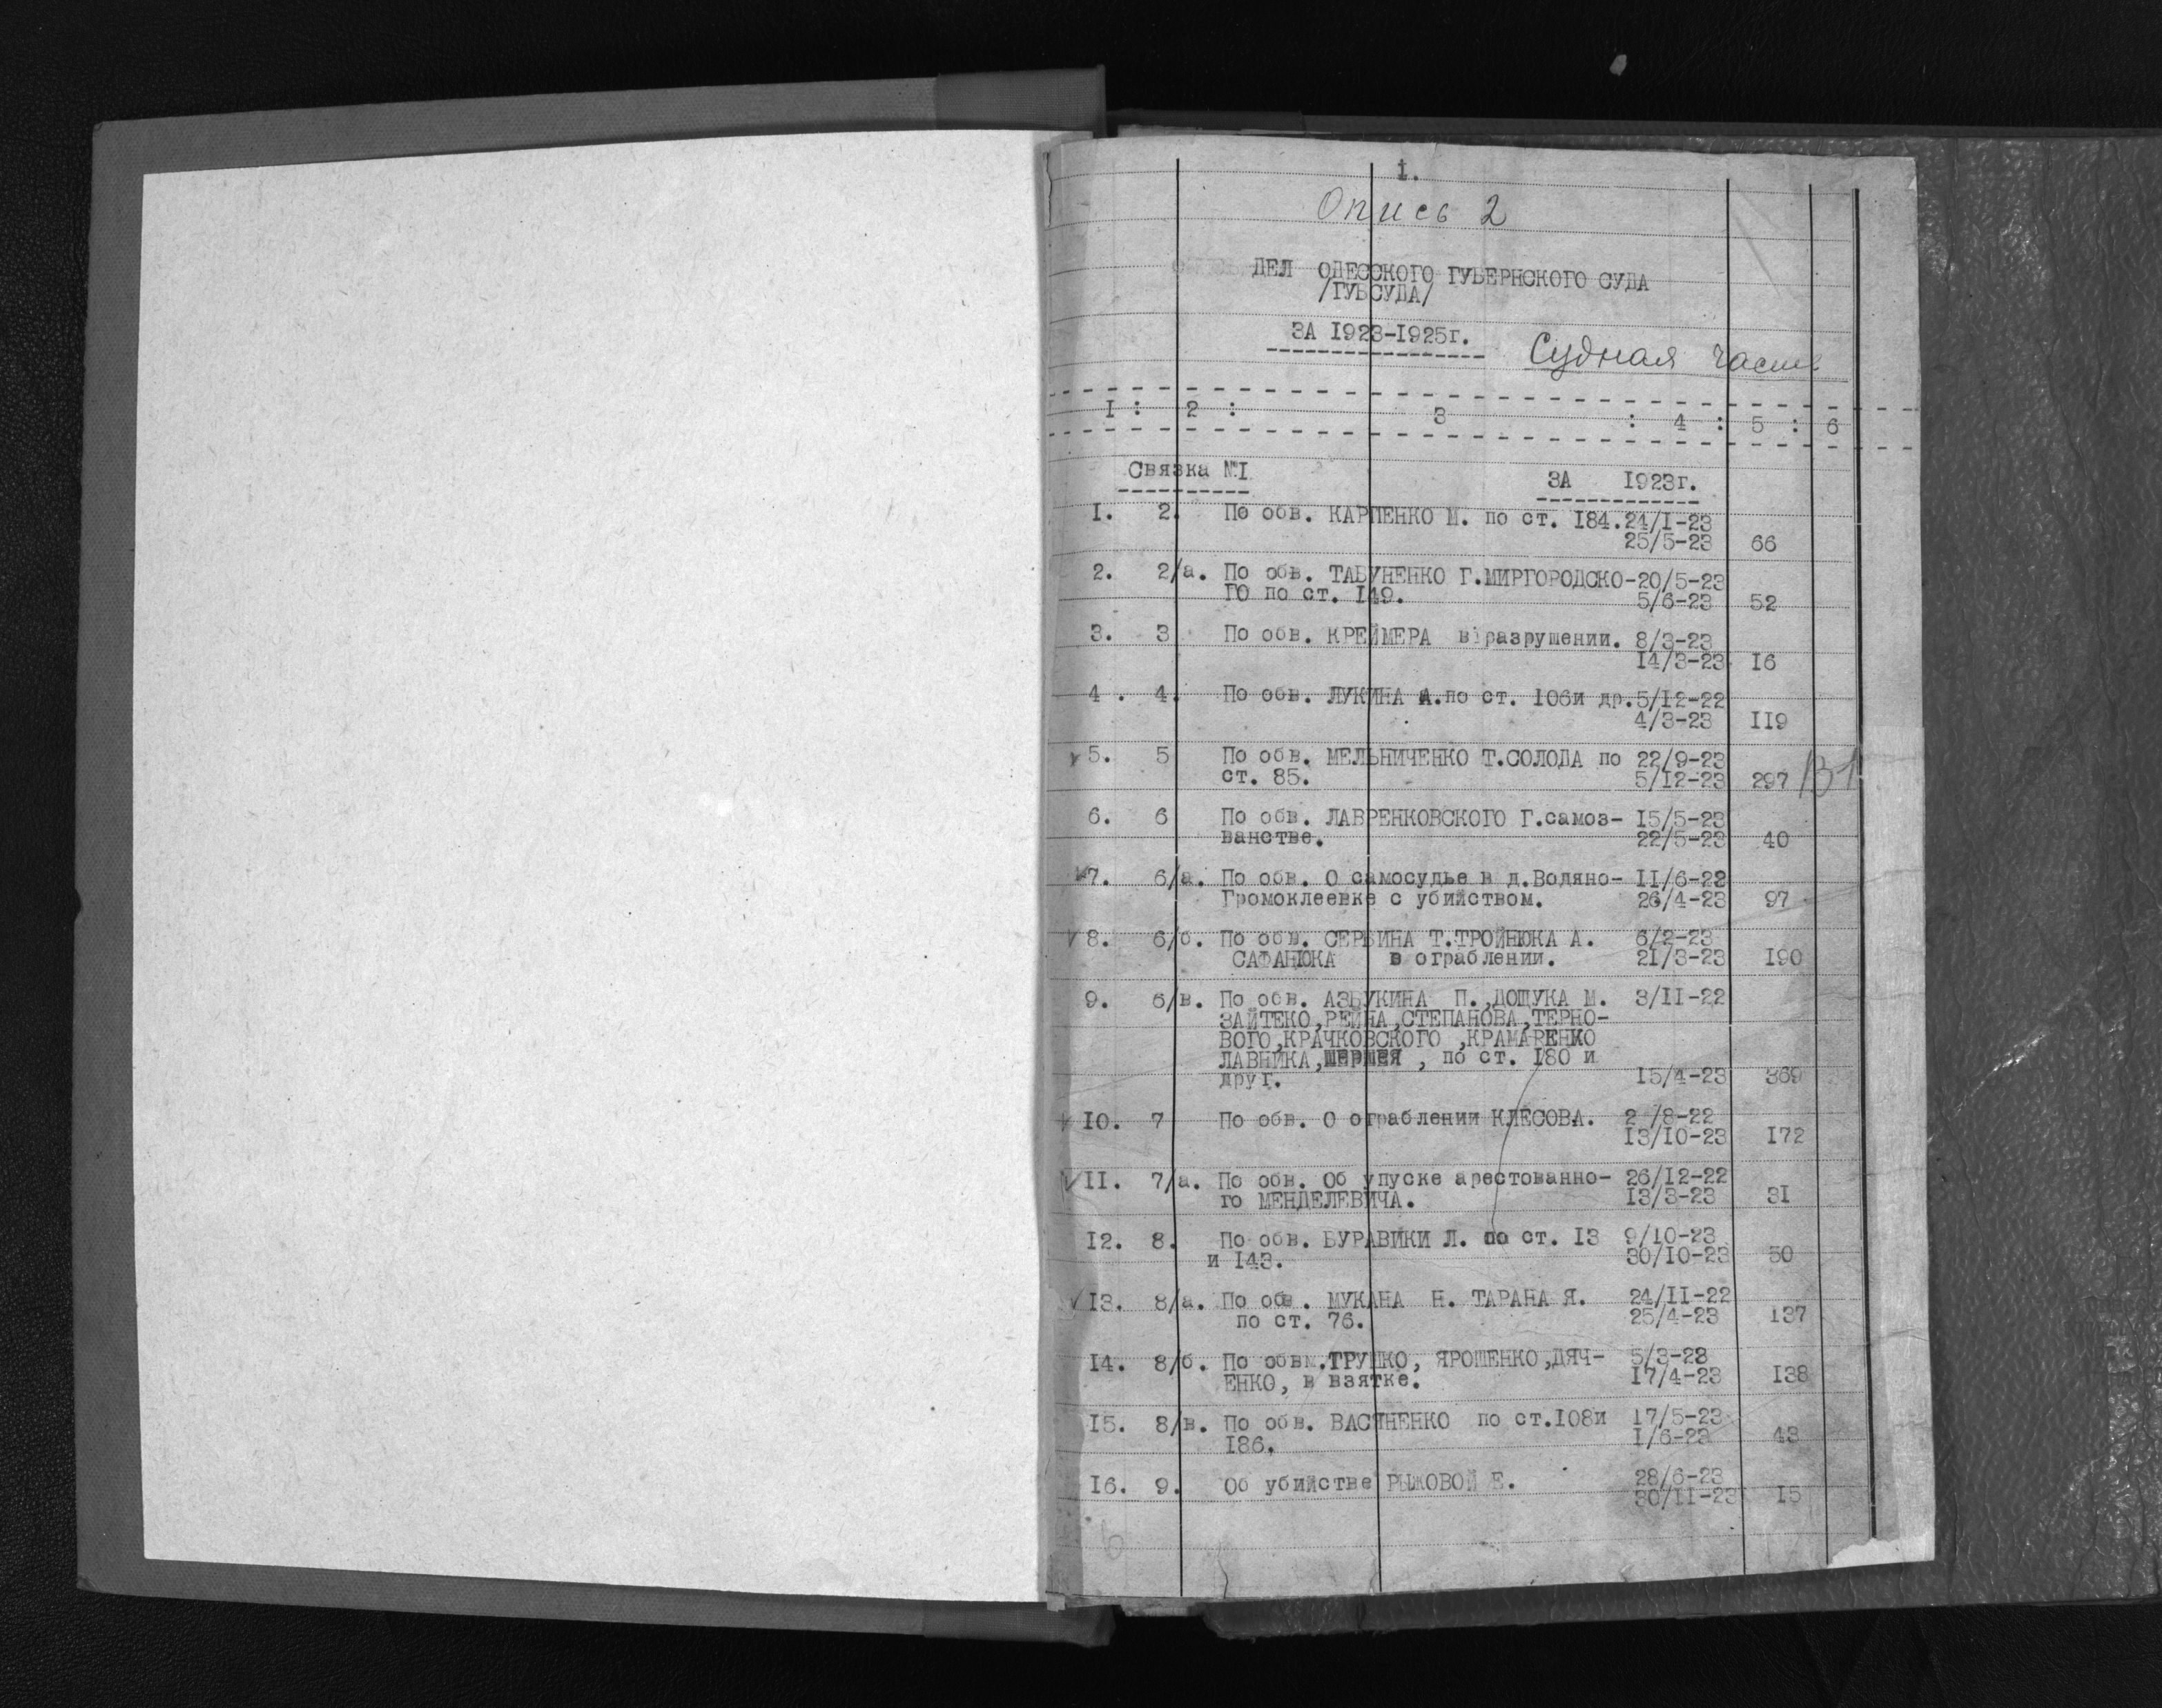 1.
Опись 2
ДЕЛ ОДЕССКОГО ГУБЕРНСКОГО СУДА
/ГУБСУДА/
ЗА 1923-1925г.
Судная часть
I : 2 : 3 : 4 : 5 : 6
Связка №I
ЗА 1923г.
I. 2. По обв. КАРПЕНКО М. по ст. 184. 24/I-23
25/5-23 66
2. 2/а. По обв. ТАБУНЕНКО Г.МИРГОРОДСКО- 20/5-23
ГО по ст. 149. 5/6-23 52
3. 3 По обв. КРЕЙМЕРА в разрушении. 8/3-23
14/3-23 16
4. 4. По обв. ЛУКИНА А.по ст. 106и др. 5/12-22
4/3-23 119
5. 5 По обв. МЕЛЬНИЧЕНКО Т.СОЛОДА по 22/9-23
ст. 85. 5/12-23 297
6. 6 По обв. ЛАВРЕНКОВСКОГО Г.самоз- 15/5-23
ванстве. 22/5-23 40
7. 6/а. По обв. О самосудье в д.Водяно- II/6-22
Громоклеевке с убийством. 26/4-23 97
8. 6/б. По обв. СЕРБИНА Т.ТРОЙНЮКА А. 6/2-23
САФАНЮКА в ограблении. 21/3-23 190
9. 6/в. По обв. АЗБУКИНА П.,ДОЩУКА М. 3/II-22
ЗАЙТЕКО,РЕЙНА,СТЕПАНОВА,ТЕРНО-
ВОГО,КРАЧКОВСКОГО ,КРАМАРЕНКО
ЛАВНИКА, , по ст. 180 и
друг. 15/4-23 369
10. 7 По обв. О ограблении КЛЕСОВА. 2 /8-22
13/10-23 172
II. 7/а. По обв. Об упуске арестованно- 26/12-22
го МЕНДЕЛЕВИЧА. 13/3-23 31
12. 8. По обв. БУРАВИКИ Л. по ст. 13 9/10-23
и 143. 30/10-23 50
13. 8/а. По обв. МУКАНА Н. ТАРАНА Я. 24/II-22
по ст. 76. 25/4-23 137
14. 8/б. По обвм.ТРУШКО, ЯРОШЕНКО,ДЯЧ- 5/3-23
ЕНКО, в взятке. 17/4-23 138
15. 8/в. По обв. ВАСЯНЕНКО по ст.108и 17/5-23
186, 1/6-23 43
16. 9. Об убийстве РЫЖОВОЙ Е. 28/6-23
30/II-23 15